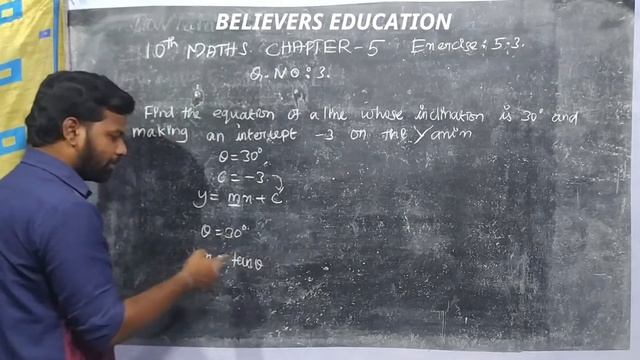 BELIEVERS EDUCATION
10th MATHS CHAPTER-5 Exercise: 5.3.
Q.NO: 3.
Find the equation of a line whose inclination is 30° and
making an intercept -3 on the Y axis
θ = 30°
C = -3.
y = mx + c
θ = 30°
= tan θ